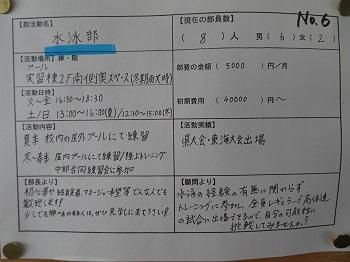 No.6
【部活動名】
水泳部
【現在の部員数】
( 8 )人 男( 6 )女( 2 )
【活動場所】棟・階
プール
実習棟2F南側奥スペース(冬期雨天時)
部費の金額( 5000 )円/月
【活動日時】
火〜金 16:30〜18:30
土/日 13:00〜16:00(夏)/12:30〜15:00(冬)
初期費用( 40000 )円〜
【活動内容】
夏季 校内の屋外プールにて練習
冬〜春季 屋内プールにて練習/陸上トレーニング
中部合同練習会に参加
【活動実績】
県大会・東海大会出場
【部長より】
初心者や経験者、マネージャー希望等どんな人でも
歓迎します!
少しでも興味のある人は、ぜひ見学に来て下さい!
【顧問より】
水泳の経験の有無に関わらず
トレーニングに参加し、全員レギュラーで高体連
の試合に出場できるので、自分の可能性に
挑戦してみませんか?